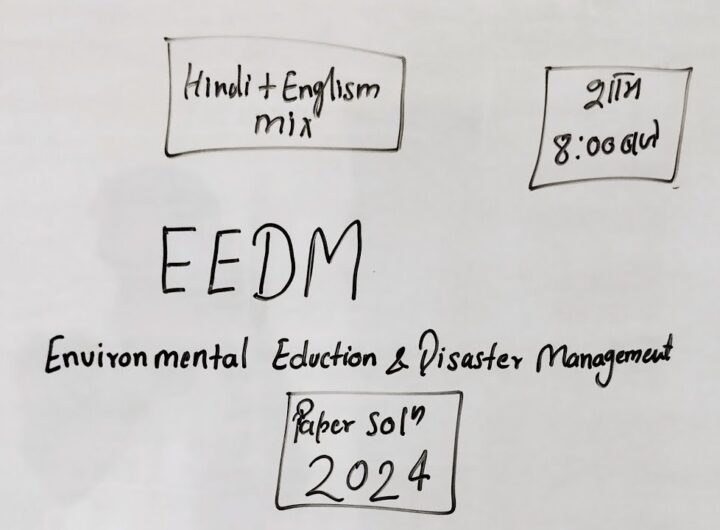 Hindi + Englism
mix
शाम
8:00 बजे
EEDM
Environmental Eduction & Disaster Management
Paper Solⁿ
2024